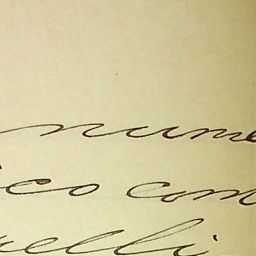 nume
ico com
uelli